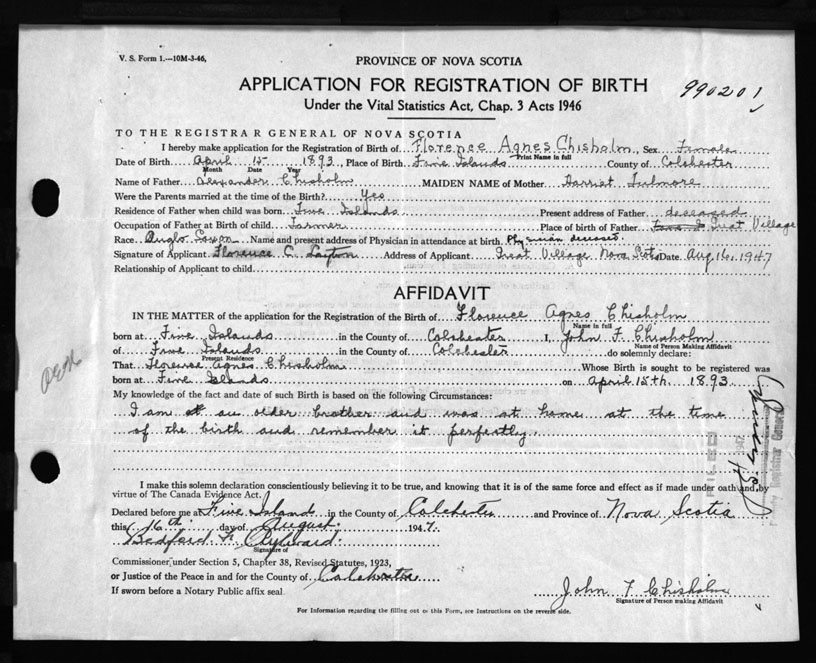 V. S. Form 1.—10M-3-46,
PROVINCE OF NOVA SCOTIA
APPLICATION FOR REGISTRATION OF BIRTH
990201
Under the Vital Statistics Act, Chap. 3 Acts 1946
TO THE REGISTRAR GENERAL OF NOVA SCOTIA
I hereby make application for the Registration of Birth of Florence Agnes Chisholm, Sex Female
Print Name in full
Date of Birth April 15 1893 Place of Birth Five Islands County of Colchester
Month Date Year
Name of Father Alexander Chisholm MAIDEN NAME of Mother Harriet Fulmore
Were the Parents married at the time of the Birth? Yes
Residence of Father when child was born Five Islands Present address of Father deceased
Occupation of Father at Birth of child Farmer Place of birth of Father Great Village
Race Anglo Saxon Name and present address of Physician in attendance at birth Physician deceased
Signature of Applicant Florence C. Layton Address of Applicant Great Village Nova Scotia Date Aug 16, 1947
Relationship of Applicant to child
AFFIDAVIT
IN THE MATTER of the application for the Registration of the Birth of Florence Agnes Chisholm
Name in full
born at Five Islands in the County of Colchester I, John F. Chisholm
Name of Person Making Affidavit
of Five Islands in the County of Colchester do solemnly declare:
Present Residence
That Florence Agnes Chisholm Whose Birth is sought to be registered was
born at Five Islands on April 15th. 1893.
My knowledge of the fact and date of such Birth is based on the following Circumstances:
I am an older brother and was at home at the time
of the birth and remember it perfectly.
I make this solemn declaration conscientiously believing it to be true, and knowing that it is of the same force and effect as if made under oath and by
virtue of The Canada Evidence Act.
Declared before me at Five Islands in the County of Colchester and Province of Nova Scotia
this 16th day of August 1947.
Bedford
Signature of
Commissioner under Section 5, Chapter 38, Revised Statutes, 1923,
or Justice of the Peace in and for the County of Colchester
If sworn before a Notary Public affix seal
John F Chisholm
Signature of Person making Affidavit
For Information regarding the filling out of this Form, see Instructions on the reverse side.